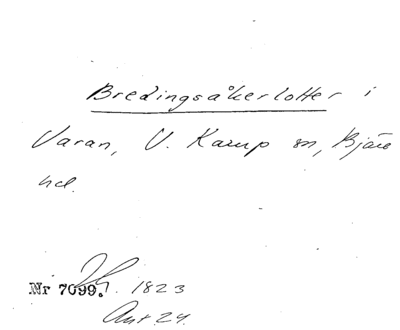 Bredingsåkerlotter i
Varan, V. Karup sn, Bjäre
hd.
Nr 7099. 1823
Ant 24.